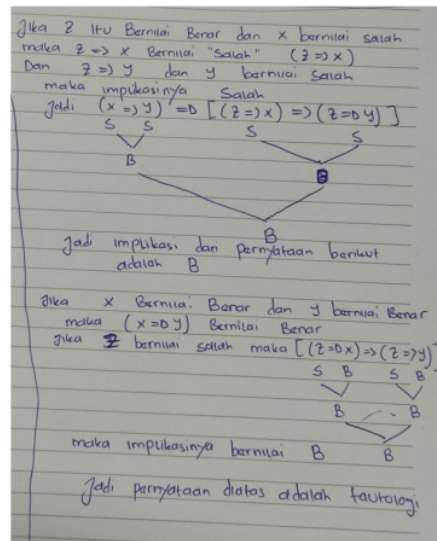 Jika Z itu Bernilai Benar dan x bernilai salah
maka z => x Bernilai "Salah" (z => x)
Dan z => y dan y bernilai Salah
maka implikasinya Salah
Jadi (x => y) => [(z => x) => (z => y)]
S S S S
B B
B
Jadi implikasi dari pernyataan berikut
adalah B
Jika x Bernilai Benar dan y bernilai Benar
maka (x => y) Bernilai Benar
Jika z bernilai salah maka [(z => x) => (z => y)]
S B S B
B B
maka implikasinya bernilai B B
Jadi pernyataan diatas adalah tautologi